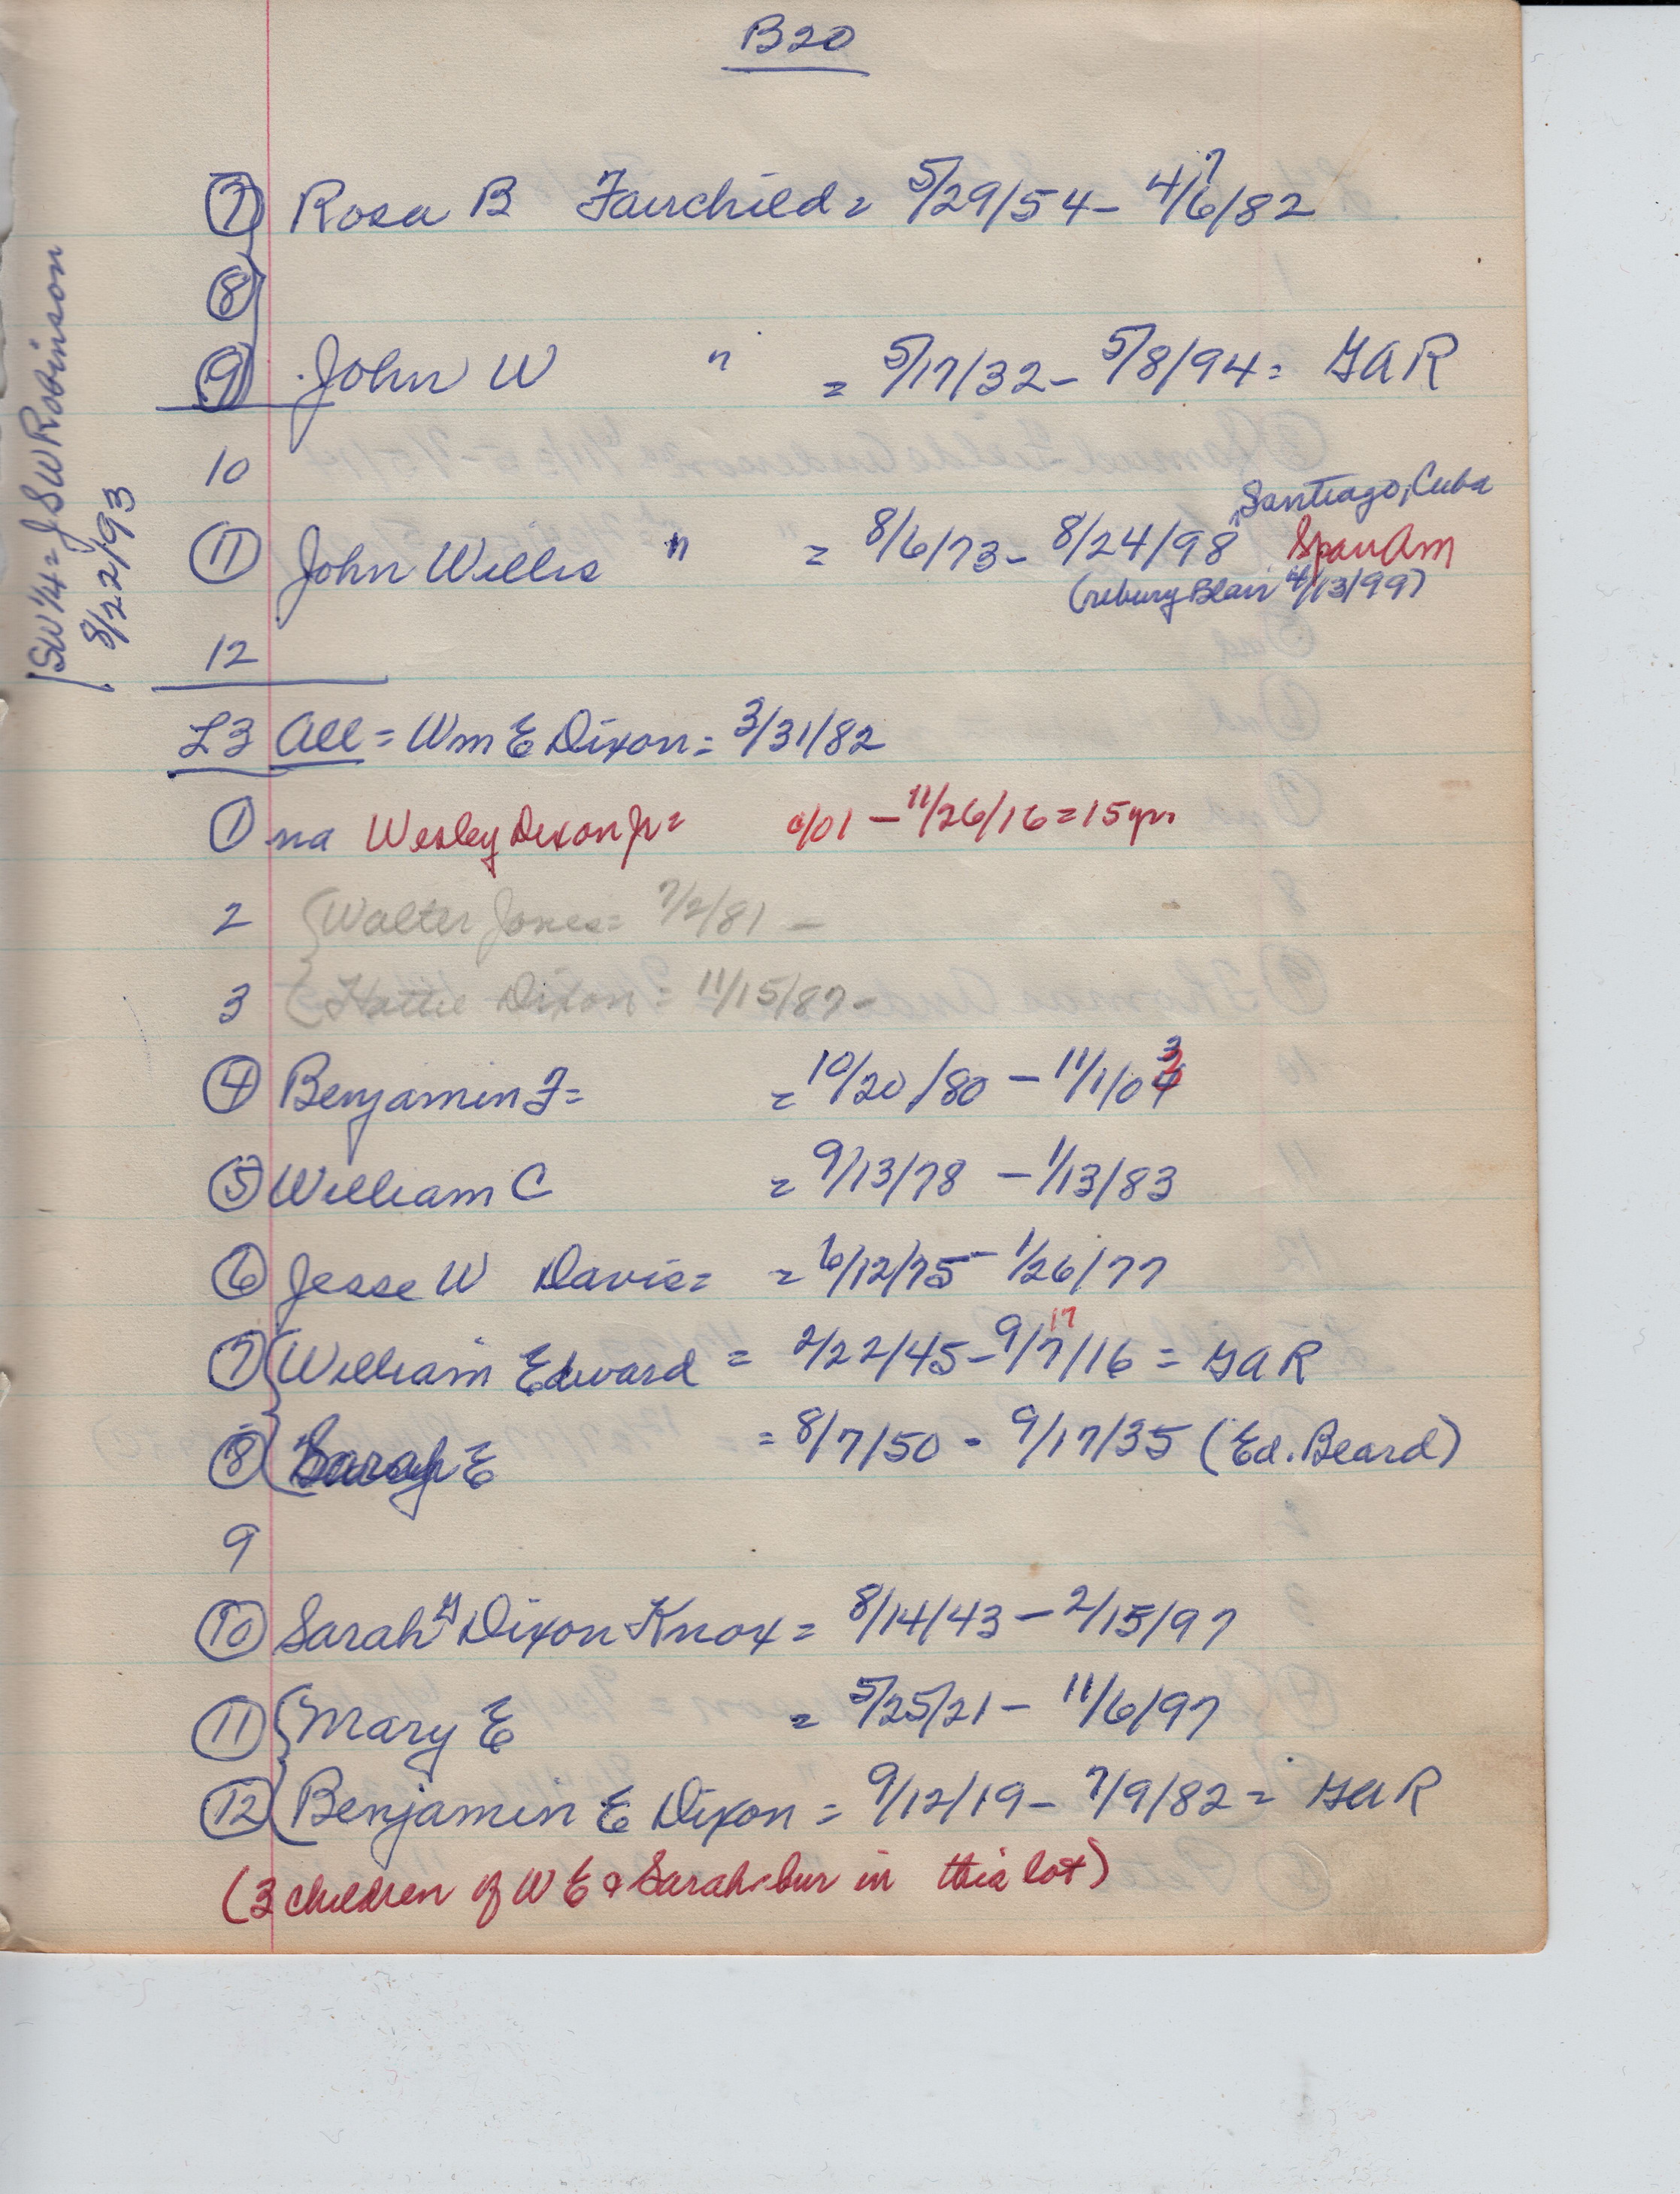 B20
⑦ Rosa B Fairchild = 5/29/54 - 4/6/82
7
⑧
⑨ John W " = 5/17/32 - 5/8/94 = GAR
10
Santiago, Cuba
⑪ John Willis " = 8/6/73 - 8/24/98 Span Am
(rebury Blair 4/13/99)
12
[SW 1/4 = J S W Robinson
8/22/93
L3 All = Wm E Dixon = 3/31/82
① na Wesley Dixon Jr = /01 - 11/26/16 = 15 yrs
2 {Walter Jones = 7/2/81 -
3 {Hattie Dixon = 11/15/87 -
3
④ Benjamin F = = 10/20/80 - 11/1/04
⑤ William C = 9/13/78 - 1/13/83
⑥ Jesse W Davis = = 6/12/75 - 1/26/77
17
⑦ {William Edward = 2/22/45 - 9/7/16 = GAR
⑧ {Sarah E = 8/7/50 - 9/17/35 (Ed. Beard)
9
⑩ Sarah Dixon Knox = 8/14/43 - 2/15/97
⑪ {Mary E = 5/25/21 - 11/6/97
⑫ {Benjamin E Dixon = 9/12/19 - 7/9/82 = GAR
(3 children of W E & Sarah bur in this lot)